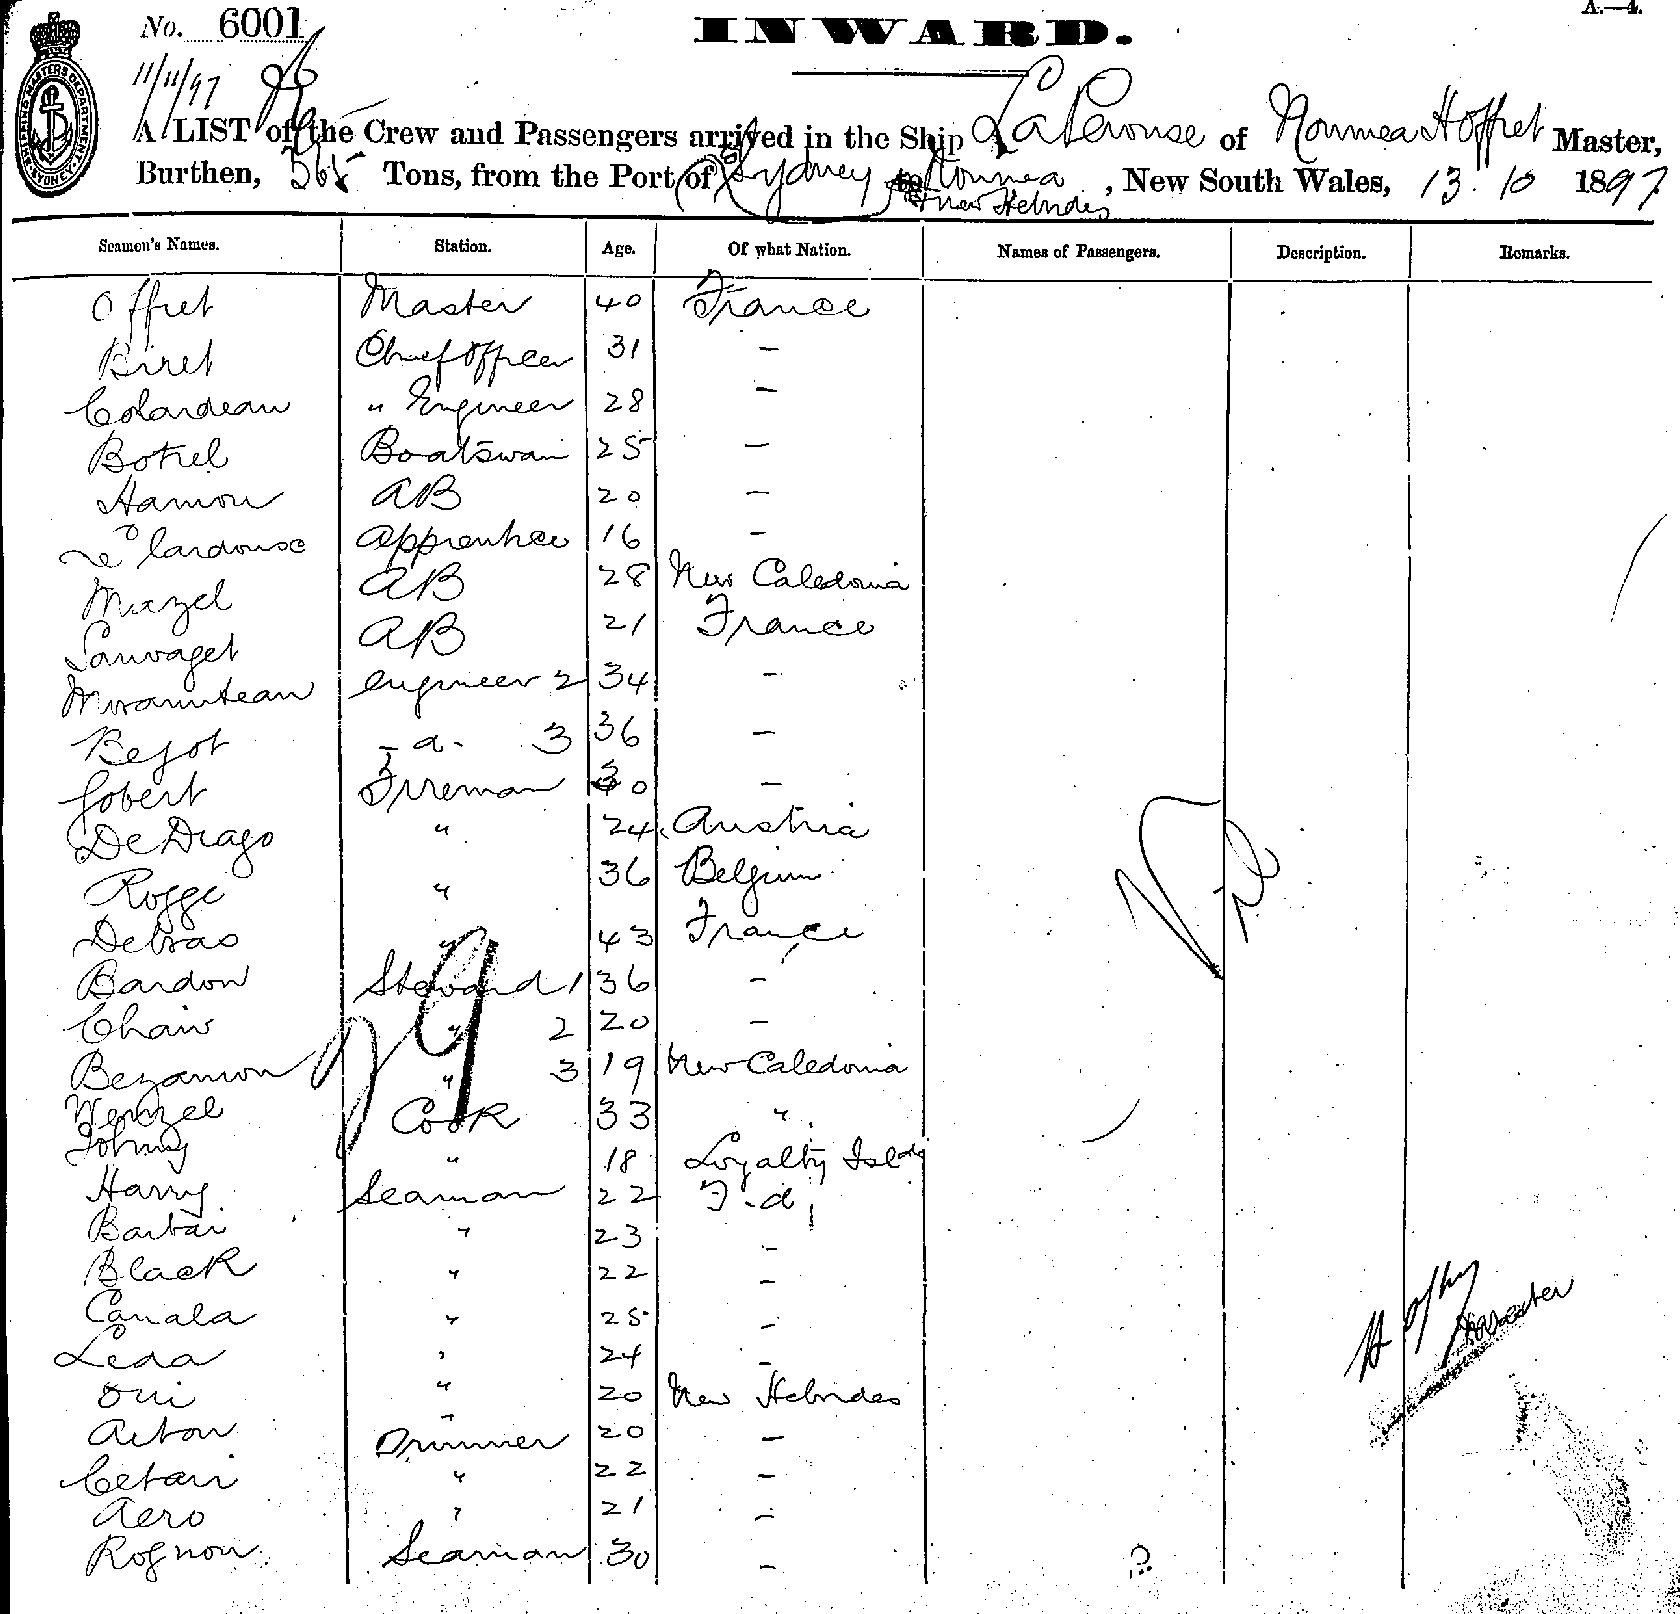 A.—4.
No. 6001
INWARD.
11/11/97
A LIST of the Crew and Passengers arrived in the Ship La Perouse of Noumea Hoffret Master,
Burthen, 565 Tons, from the Port of Sydney to Noumea, New South Wales, 13.10 1897
& New Hebrides
Seamen's Names. Station. Age. Of what Nation. Names of Passengers. Description. Remarks.
Offret Master 40 France
Biret Chief Officer 31 –
Colardeau " Engineer 28 –
Botrel Boatswain 25 –
Hamon AB 20 –
apprentice 16 –
Mazel AB 28 New Caledonia
Sauvaget AB 21 France
engineer 2 34 –
Bejot - d - 3 36 –
Gobert Fireman 30 –
De Drago " 24 Austria
Rogge " 36 Belgium
Debras " 43 France
Bardon Steward 1 36 –
Chaix " 2 20 –
Bezamon " 3 19 New Caledonia
Wenzel Cook 33 "
Johnny " 18 Loyalty Islds
Harry Seaman 22 I-d
Barbai " 23 –
Black " 22 –
Canala " 25 –
Leda " 24 –
Oui " 20 New Hebrides
Acton Trimmer 20 –
Cetari " 22 –
Aero " 21 –
Rognon Seaman 30 –
Nil
Master